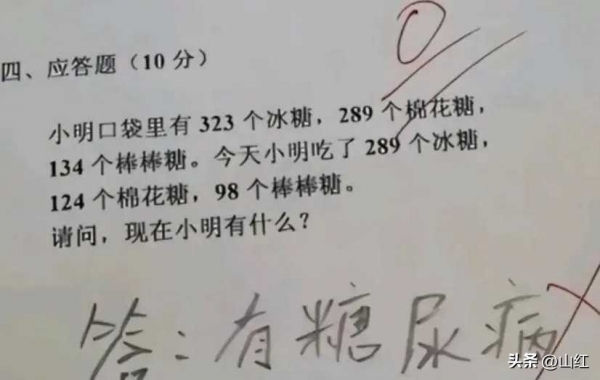 四、应答题（10 分）
0
小明口袋里有 323 个冰糖，289 个棉花糖，
134 个棒棒糖。今天小明吃了 289 个冰糖，
124 个棉花糖，98 个棒棒糖。
请问，现在小明有什么？
答：有糖尿病
头条 @山红